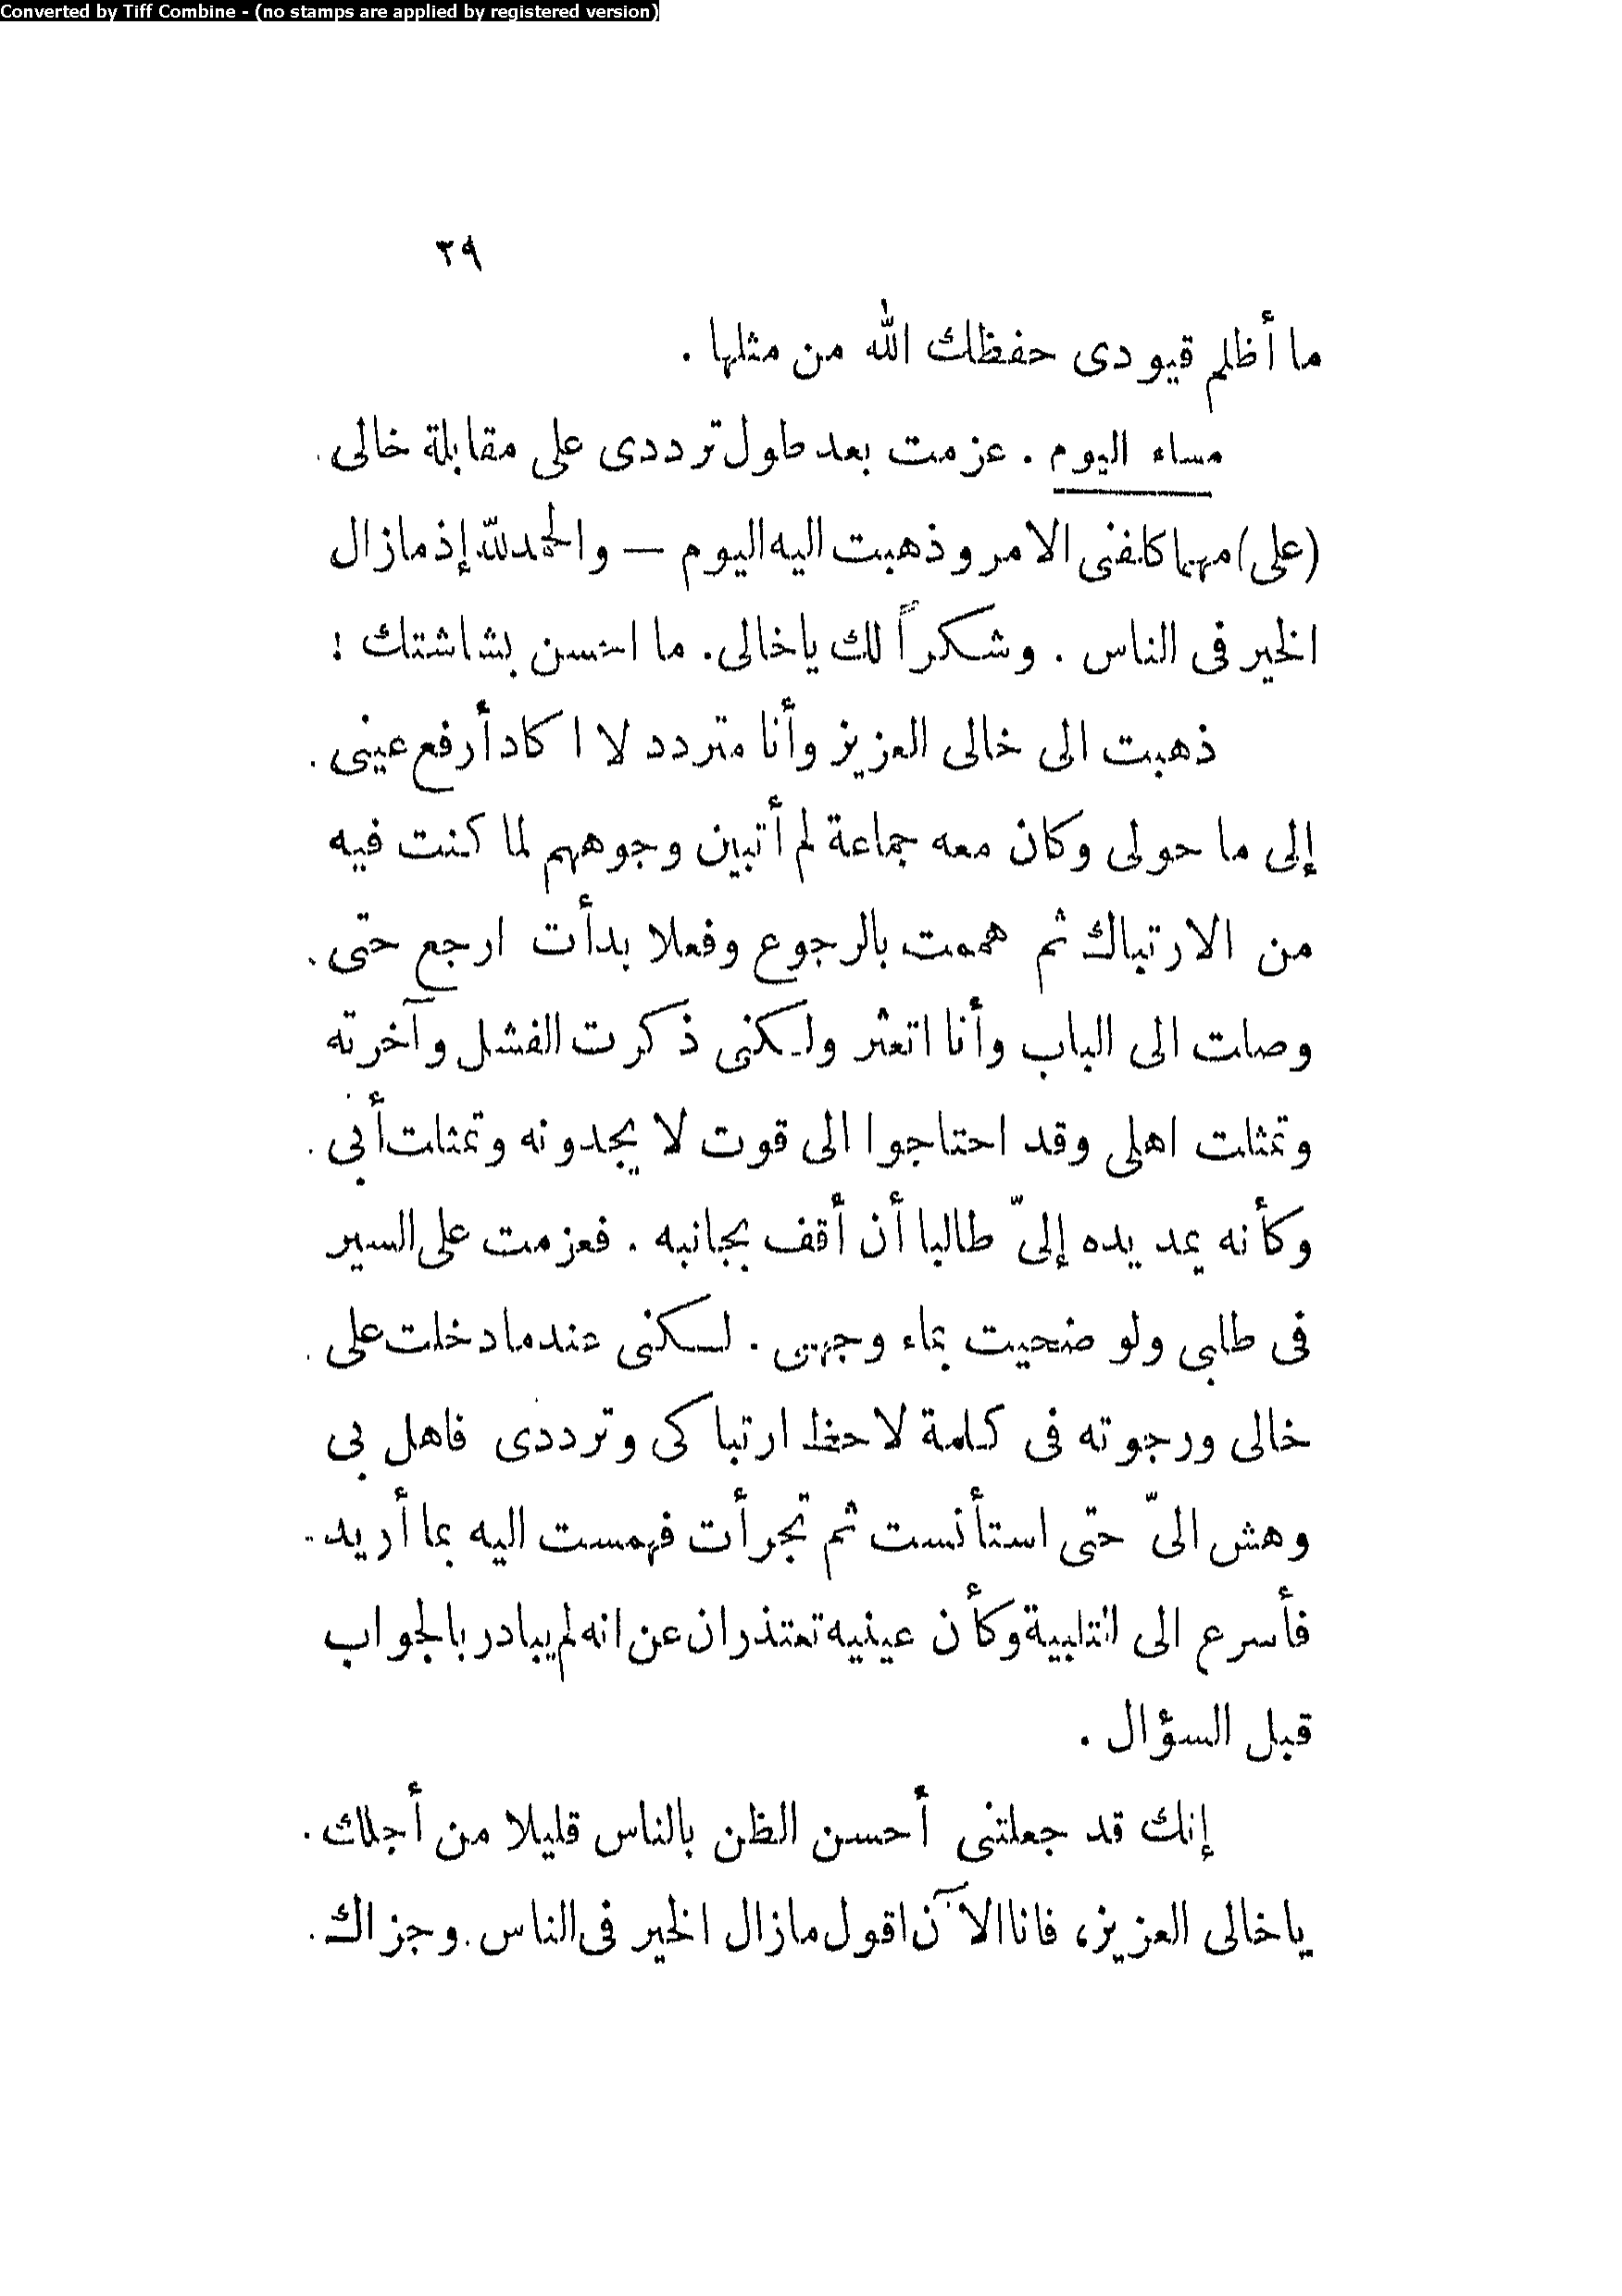 Converted by Tiff Combine - (no stamps are applied by registered version)
٣٩
ما أظلم قيودى حفظك الله من مثلها .
مساء اليوم . عزمت بعد طول ترددى على مقابلة خالى
(على) مهما كلفنى الامر وذهبت اليه اليوم — والحمد لله إذ مازال
الخير فى الناس . وشكراً لك ياخالى . ما احسن بشاشتك !
ذهبت الى خالى العزيز وأنا متردد لا اكاد أرفع عينى
إلى ما حولى وكان معه جماعة لم أتبين وجوههم لما كنت فيه
من الارتباك ثم هممت بالرجوع وفعلا بدأت ارجع حتى
وصلت الى الباب وأنا اتعثر ولكنى ذكرت الفشل وآخرته
وتمثلت اهلى وقد احتاجوا الى قوت لا يجدونه وتمثلت أبى
وكأنه يمد يده إلىّ طالبا أن أقف بجانبه . فعزمت على السير
فى طلبى ولو ضحيت بماء وجهى . لكنى عندما دخلت على
خالى ورجوته فى كلمة لاحظ ارتباكى وترددى فاهل بى
وهش الىّ حتى استأنست ثم تجرأت فهمست اليه بما أريد
فأسرع الى التلبية وكأن عينيه تعتذران عن انه لم يبادر بالجواب
قبل السؤال .
إنك قد جعلتنى أحسن الظن بالناس قليلا من أجلك
ياخالى العزيز، فانا الآن اقول مازال الخير فى الناس . وجزاك